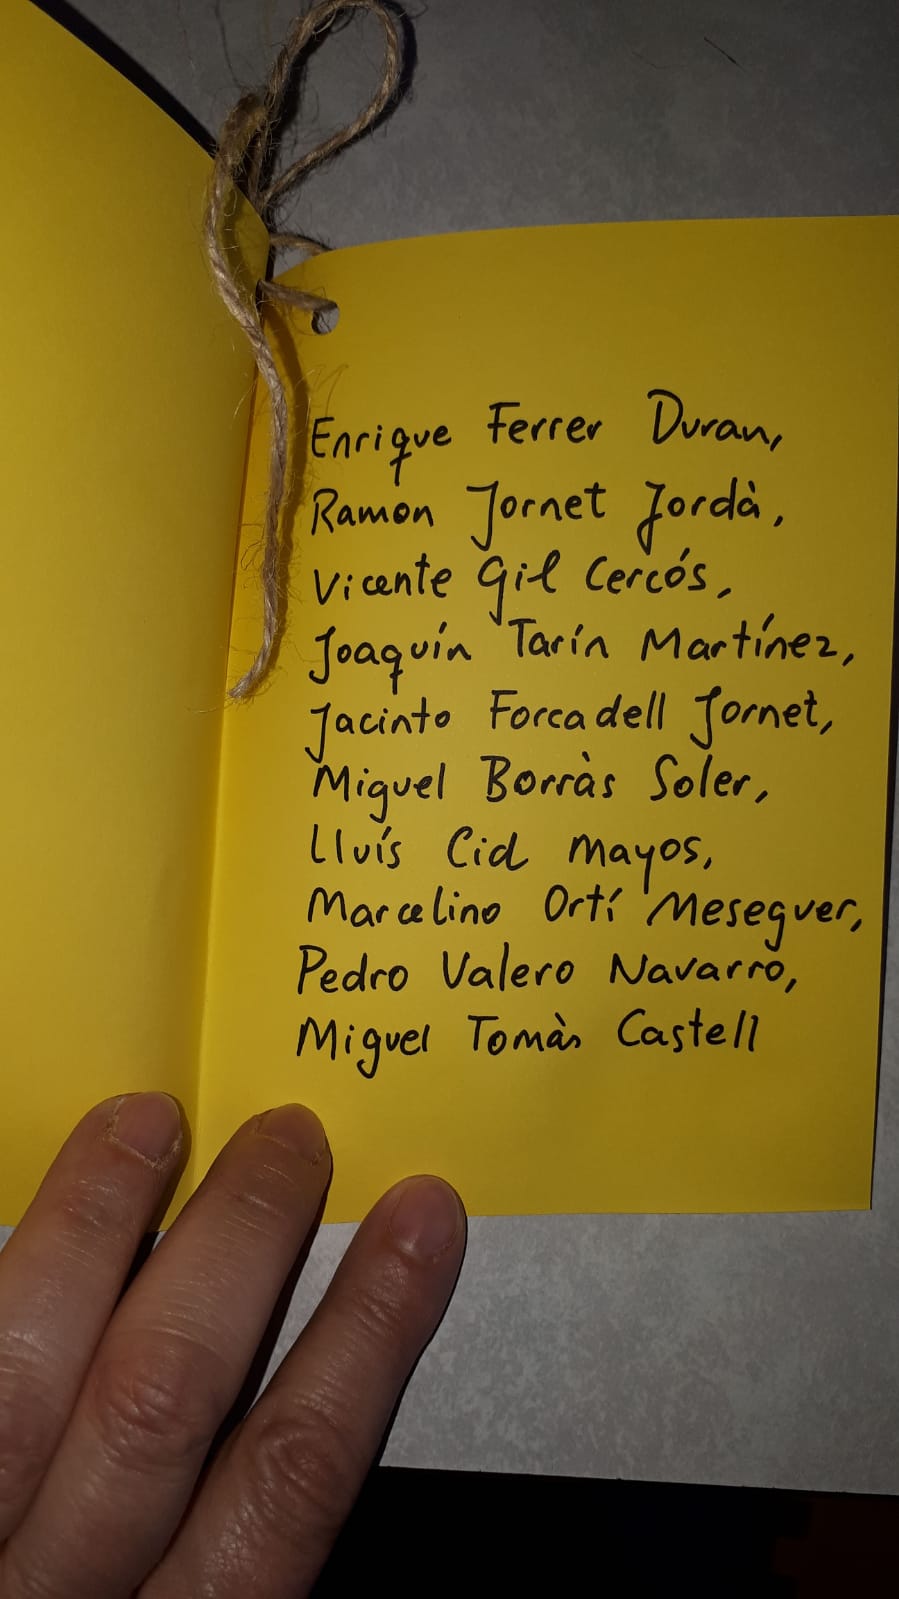 Enrique Ferrer Duran,
Ramon Jornet Jordà,
Vicente Gil Cercós,
Joaquín Tarín Martínez,
Jacinto Forcadell Jornet,
Miguel Borràs Soler,
Lluís Cid Mayos,
Marcelino Ortí Meseguer,
Pedro Valero Navarro,
Miguel Tomàs Castell